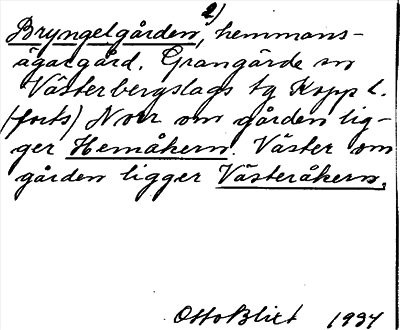 Bryngelgården, 2) hemmans-
ägargård. Grangärde sn
Västerbergslags tg Kopp l.
(forts) Norr om gården lig-
ger Hemåkern. Väster om
gården ligger Västeråkern.
Otto Blixt 1934